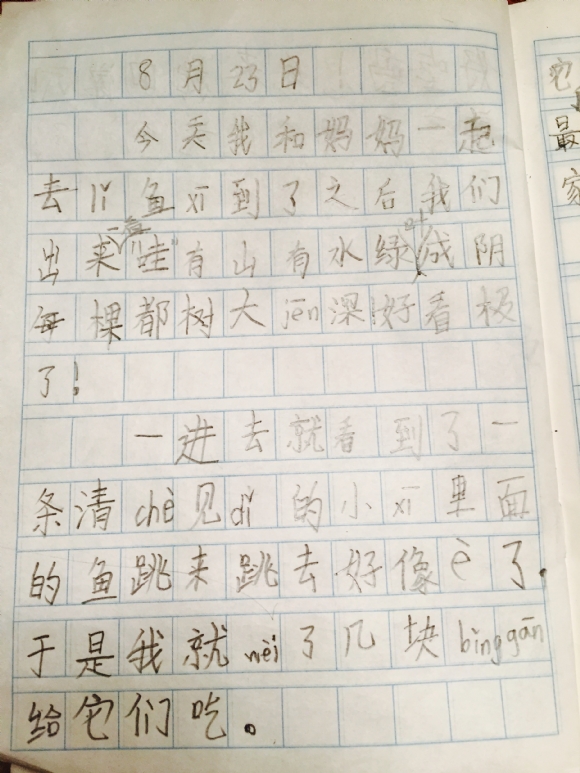 8月23日
今天我和妈妈一起
去lǐ鱼xī到了之后我们
出来"哇"有山有水绿成阴
每棵都树大jīn深!好看极
了!
一进去就看到了一
条清chè见dǐ的小xī里面
的鱼跳来跳去好像è了.
于是我就wèi了几块bǐnggān
给它们吃。
它
最
家